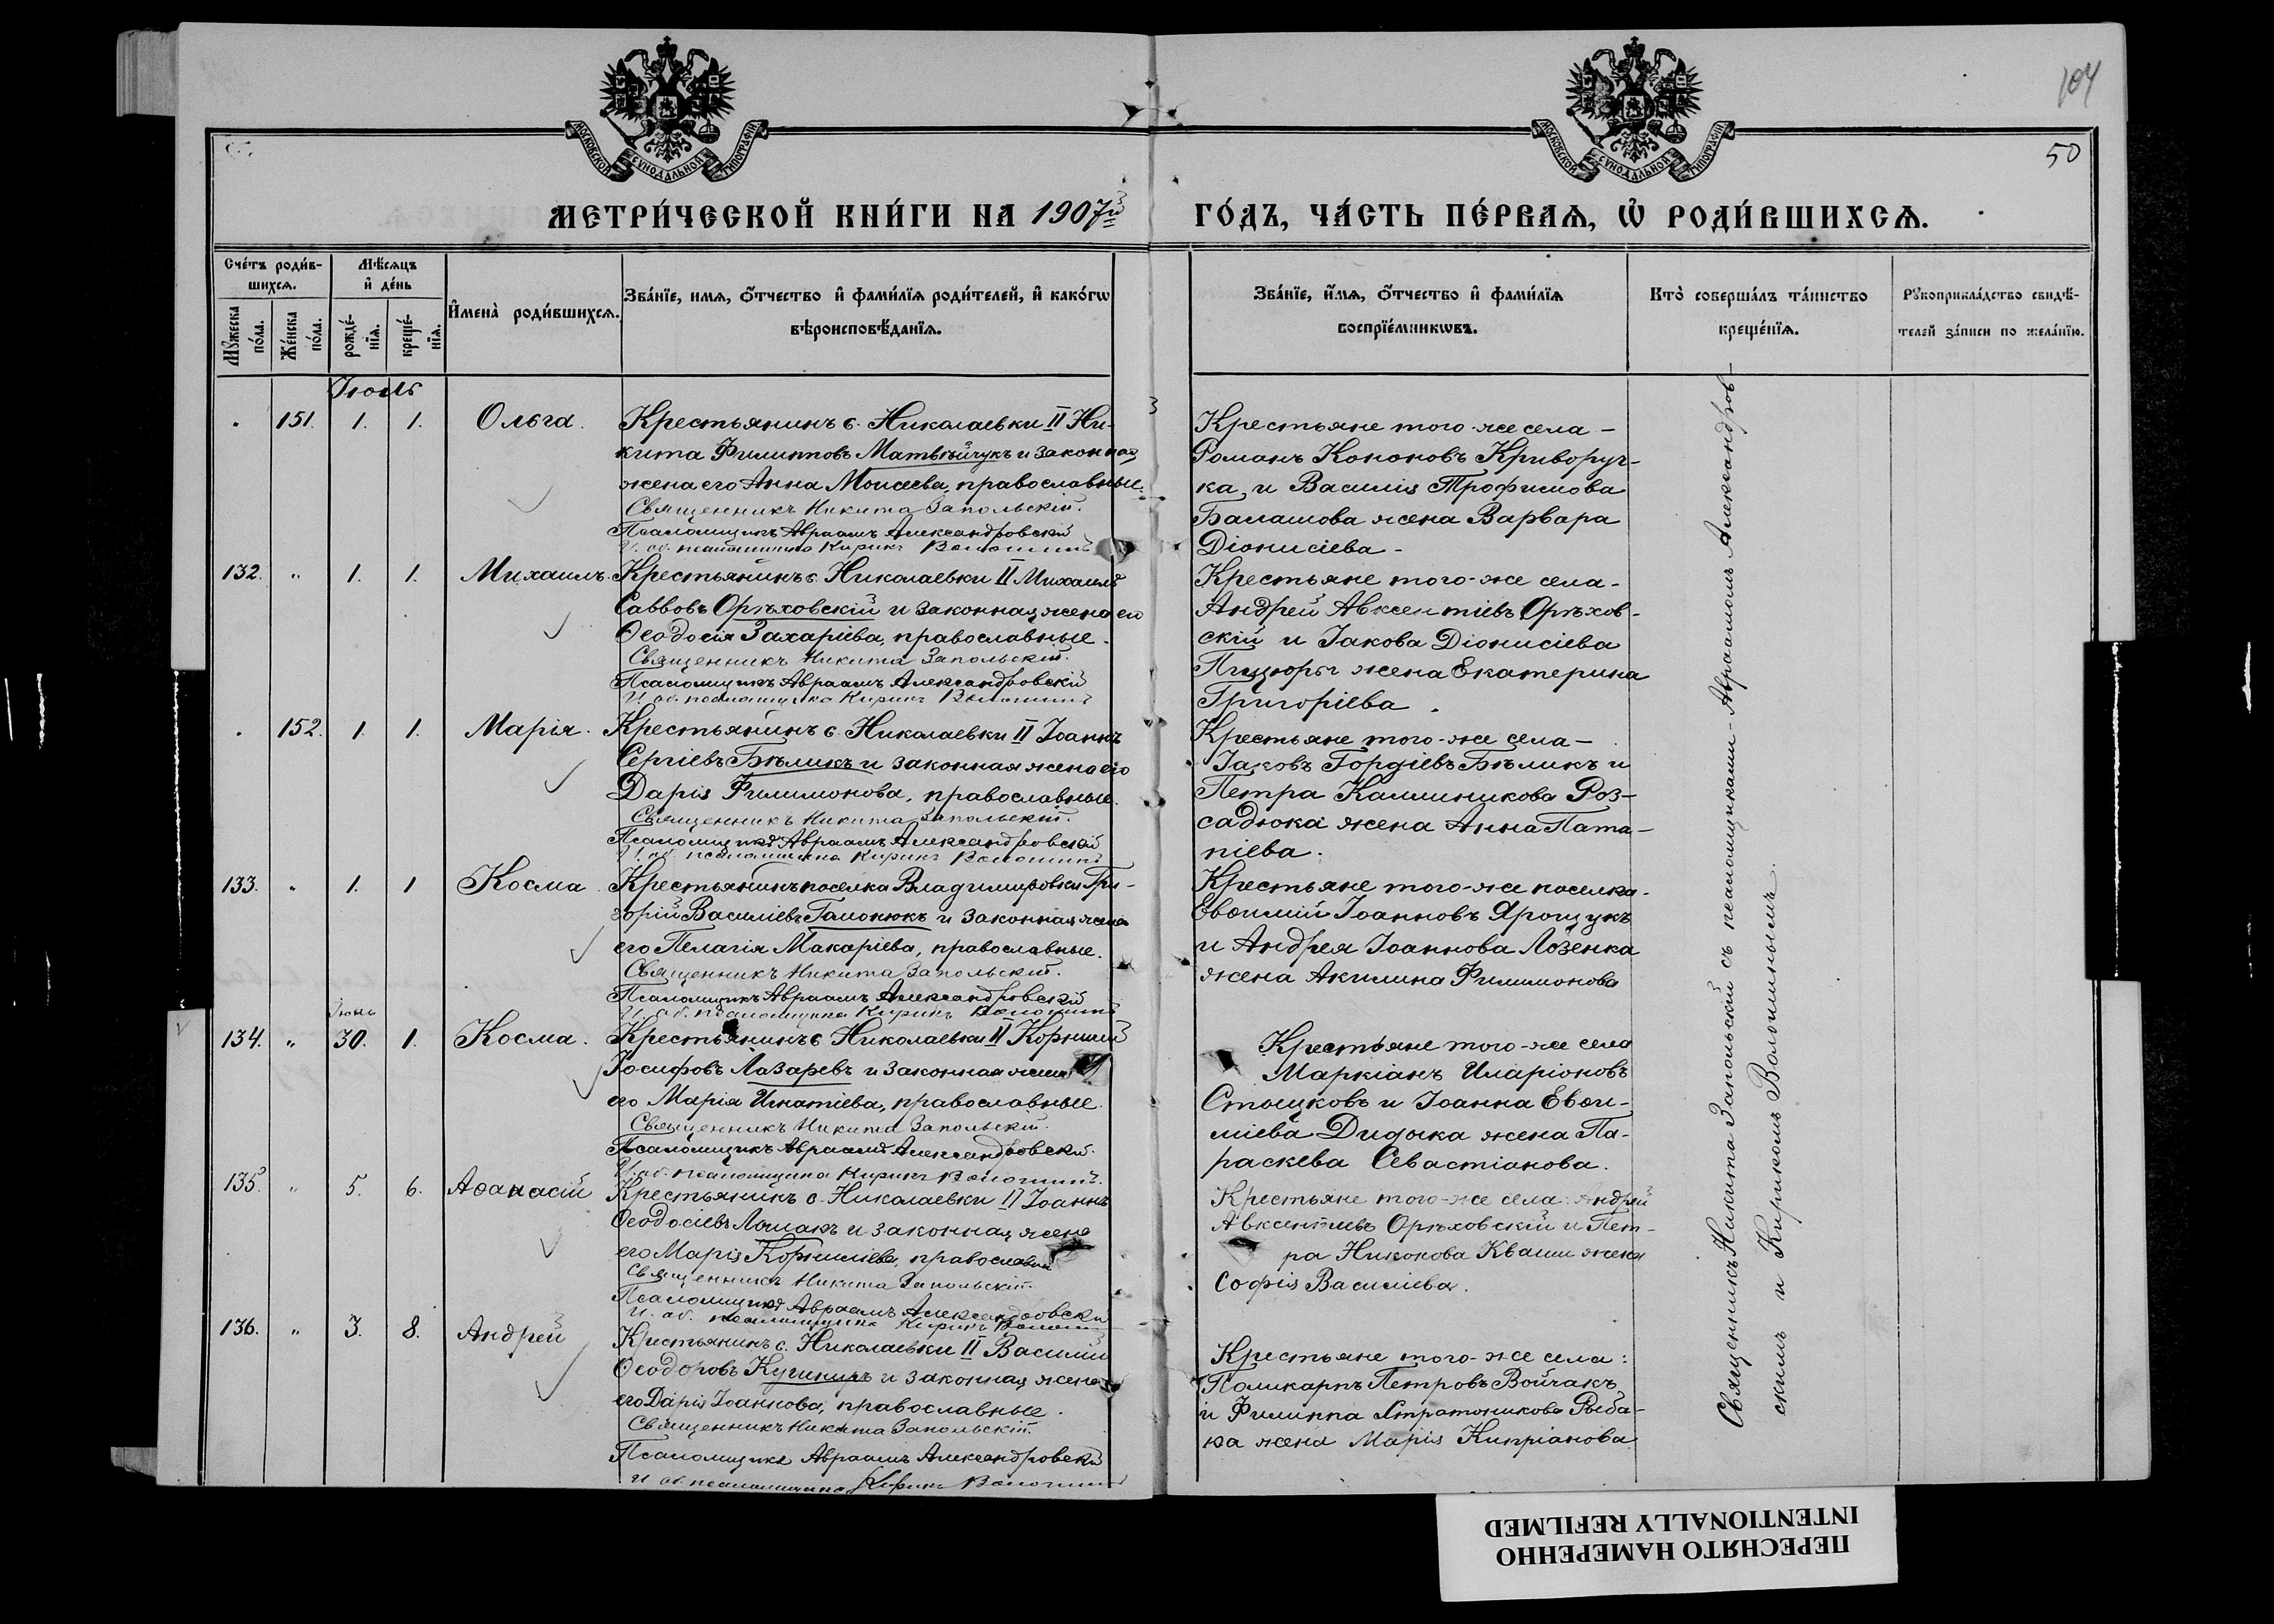 104
50
МОСКОВСКОЙ СУНОДАЛЬНОЙ ТИПОГРАФІИ
МОСКОВСКОЙ СУНОДАЛЬНОЙ ТИПОГРАФІИ
МЕТРИ́ЧЕСКОЙ КНИ́ГИ НА 1907й
ГО́ДЪ, ЧА́СТЬ ПЕ́РВАѦ, Ѡ҆ РОДИ́ВШИХСѦ.
Сче́тъ роди́в-
шихсѧ.
Мѣ́сѧцъ
и҆ де́нь
Мꙋ́жеска
по́ла.
Же́нска
по́ла.
рожде́-
нїѧ.
креще́-
нїѧ.
И҆мена̀ роди́вшихсѧ.
Зва́нїе, имѧ, ѻ҆́тчество и҆ фами́лїѧ роди́телей, и҆ како́гѡ
вѣроисповѣ́данїѧ.
Зва́нїе, и҆́мѧ, ѻ҆́тчество и҆ фами́лїѧ
воспрїе́мникѡвъ.
Кто̀ соверша́лъ та́инство
креще́нїѧ.
Рꙋкоприкла́дство свидѣ́-
телей за́писи по жела́нїю.
Іюль
151. 1. 1. Ольга.
Крестьянинъ с. Николаевки II Ни-
кита Филипповъ Матвѣйчукъ и законная
жена его Анна Моисеева, православные.
Священникъ Никита Запольскій.
Псаломщикъ Авраамъ Александровскій
И. об. псаломщика Кирикъ Волошинъ
Крестьяне того-же села -
Романъ Кононовъ Криворуч-
ка, и Василія Трофимова
Балашова жена Варвара
Діонисіева -
132. " 1. 1. Михаилъ.
Крестьянинъ с. Николаевки II Михаилъ
Саввовъ Орѣховскій и законная жена его
Ѳеодосія Захаріева, православные.
Священникъ Никита Запольскій.
Псаломщикъ Авраамъ Александровскій
И. об. псаломщика Кирикъ Волошинъ
Крестьяне того-же села -
Андрей Авксентіевъ Орѣхов-
скій и Іакова Діонисіева
жена Екатерина
Григоріева.
152. 1. 1. Марія.
Крестьянинъ с. Николаевки II Іоаннъ
Сергіевъ Бѣликъ и законная жена его
Дарія Филимонова, православные.
Священникъ Никита Запольскій.
Псаломщикъ Авраамъ Александровскій
И. об. псаломщика Кирикъ Волошинъ
Крестьяне того-же села -
Іаковъ Гордіевъ Бѣликъ и
Петра Каллиникова Роз-
садюка жена Анна Пата-
піева.
133. " 1. 1 Косма.
Крестьянинъ поселка Владимировки Гри-
горій Василіевъ Галонюкъ и законная жена
его Пелагія Макаріева, православные.
Священникъ Никита Запольскій.
Псаломщикъ Авраамъ Александровскій
И. об. псаломщика Кирикъ Волошинъ
Крестьяне того-же поселка -
Евѳимій Іоанновъ Ярощукъ
и Андрея Іоаннова Лозенка
жена Акилина Филимонова
Іюнь
134. " 30. 1. Косма.
Крестьянинъ с. Николаевки II Корнилій
Іосифовъ Лазаревъ и законная жена
его Марія Игнатіева, православные.
Священникъ Никита Запольскій.
Псаломщикъ Авраамъ Александровскій.
И. об. псаломщика Кирикъ Волошинъ.
Крестьяне того-же села
Маркіанъ Иларіоновъ
Стыцковъ и Іоанна Евѳи-
міева Дидыка жена Па-
раскева Севастіанова.
135. " 5. 6. Аѳанасій
Крестьянинъ с. Николаевки II Іоаннъ
Ѳеодосіевъ Ломакъ и законная жена
его Марія Корниліева, православн
Священникъ Никита Запольскій.
Псаломщикъ Авраамъ Александровскій
И. об. псаломщика Кирикъ Волошинъ
Крестьяне того-же села: Андрей
Авксентіевъ Орѣховскій и Пет-
ра Никонова Кваши жена
Софія Василіева.
136. " 3. 8. Андрей
Крестьянинъ с. Николаевки II Василій
Ѳеодоровъ Кушниръ и законная жена
его Дарія Іоаннова, православные.
Священникъ Никита Запольскій.
Псаломщикъ Авраамъ Александровскій
И об. псаломщика Кирикъ Волошинъ
Крестьяне того-же села:
Поликарпъ Петровъ Войчакъ
и Филиппа Стратоникова Рыба-
ка жена Марія Кипріанова
Священникъ Никита Запольскій съ псаломщиками - Авраамомъ Александров-
скимъ и Кирикомъ Волошинымъ.
ПЕРЕСНЯТО НАМЕРЕННО
INTENTIONALLY REFILMED